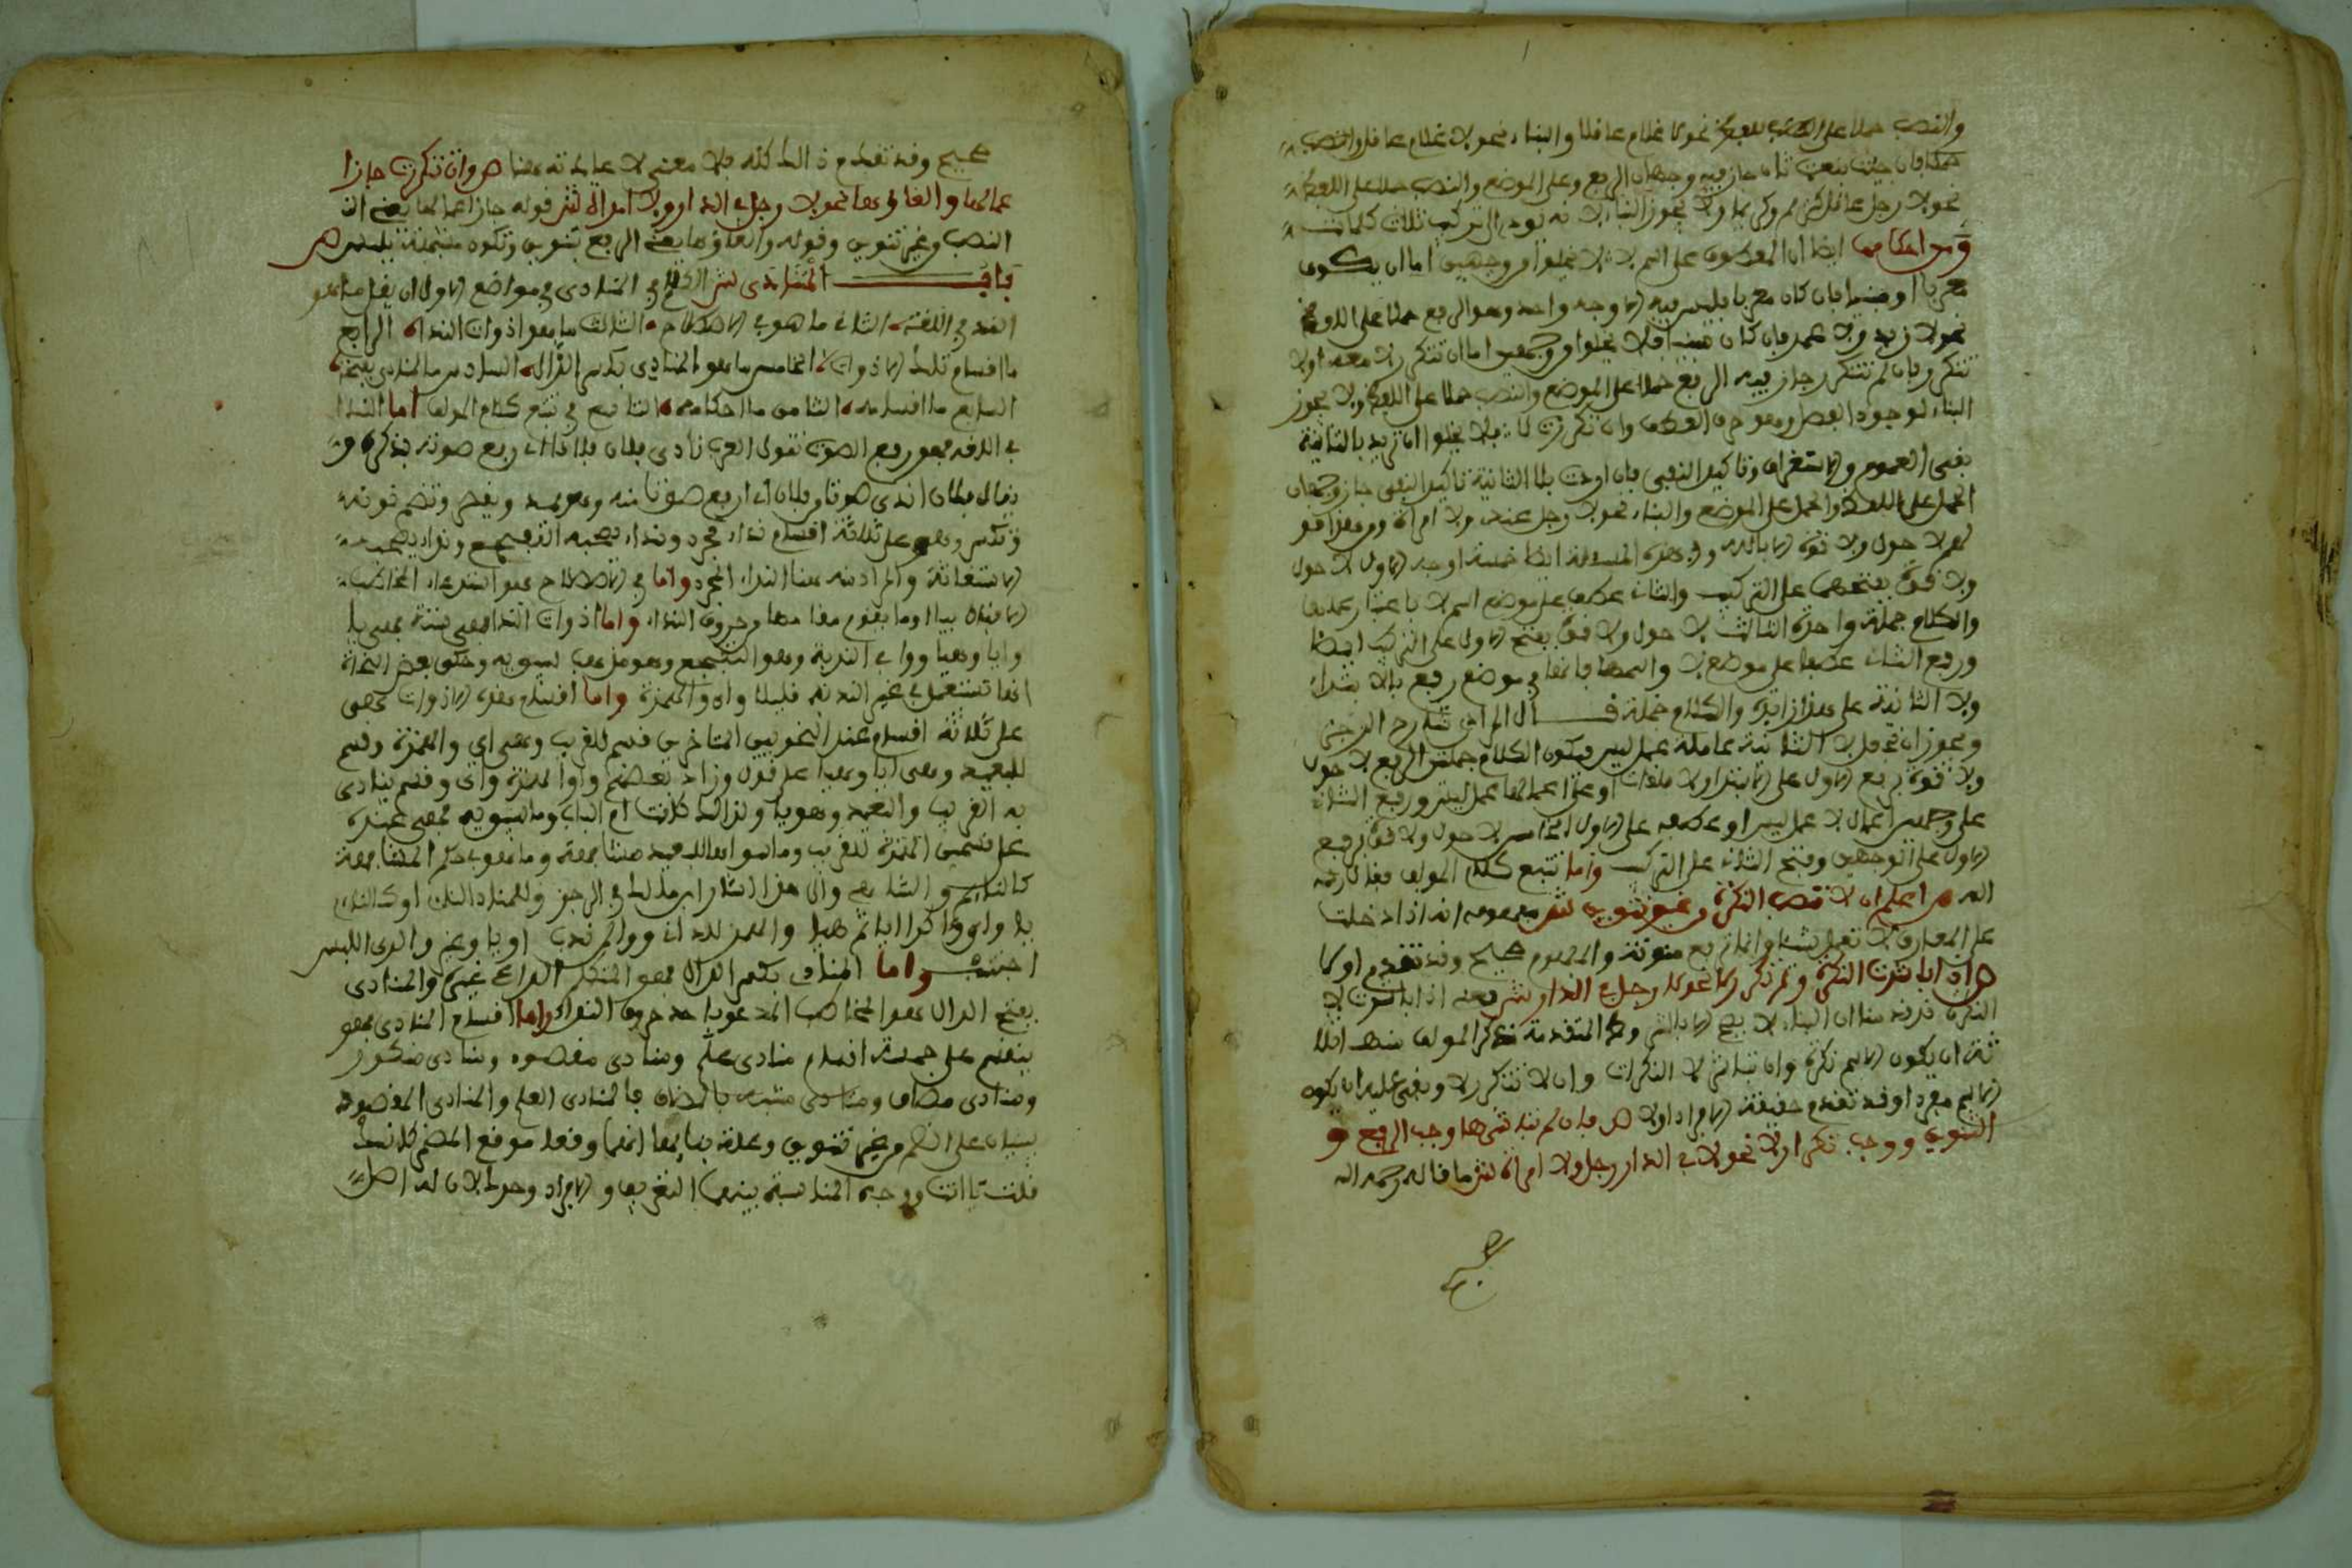 والنصب حملا على اللفظ نحو لا غلام عاقلا والبناء نحو لا غلام عاقل والنصب
فان جئت بنعت ثان جاز فيه وجهان الرفع وعلى الموضع والنصب حملا على اللفظ
نحو لا رجل عاقل كريم وكريما ولا يجوز البناء لانه يودي الى تركيب ثلاث كلمات
ومن احكامها ايضا ان المعطوف على اسم لا لا يخلوا من وجهين اما ان يكون
معربا او مبنيا فان كان معربا فليس فيه الا وجه واحد وهو الرفع حملا على الموضع
نحو لا زيد ولا عمر فان كان مبنيا فلا يخلوا من وجهين اما ان تتكرر لا معه او لا
تتكرر فان لم تتكرر جاز فيه الرفع حملا على الموضع والنصب حملا على اللفظ ولا يجوز
البناء لوجود الفصل وهو حرف العطف وان تكررت لا فلا يخلوا ان تريد بالثانية
نفي العموم والاستغراق وتاكيد النفي فان اردت بلا الثانية تاكيد النفي جاز وجهان
الحمل على اللفظ والحمل على الموضع والبناء نحو لا رجل عندي ولا امراة
لا حول ولا قوة الا بالله وفي هذه المسالة ايضا خمسة اوجه الاول لا حول
ولا قوة بفتحهما على التركيب والثاني عطف على موضع اسم لا باعتبار عملها
والكلام جملة واحدة الثالث لا حول ولا قوة بفتح الاول على التركيب ايضا
ورفع الثاني عطفا على موضع لا واسمها فانهما في موضع رفع بالابتداء
ولا الثانية على هذا زايدة والكلام جملة قال المرادي شارح المرجز
ويجوز ان تجعل لا الثانية عاملة عمل ليس فيكون الكلام جملتين الرابع لا حول
ولا قوة برفع الاول على الابتداء ولا ملغات او على اعمالها عمل ليس ورفع الثاني
على وجهين اعمال لا عمل ليس او عطفه على الاول الخامس لا حول ولا قوة برفع
الاول على الوجهين وفتح الثاني على التركيب واما تتبع كلام المولف فقال رحمه
الله ص اعلم ان لا تنصب النكرة وغير تنوين ش مفهومه انه اذا دخلت
على المعارف لا تعمل شيئا وانما ترفع منونة والمفهوم صحيح وقد تقدم اولا
ص اذا باشرت النكرة ولم تتكرر لا نحو لا رجل في الدار ش يعني اذا باشرت لا
النكرة قد قدمنا ان البناء لا يصح الا بالشروط المتقدمة فذكر المولف منها ثلا
ثة ان يكون الاسم نكرة وان تباشر لا النكرات وان لا تتكرر لا وبقي عليه ان يكون
الاسم مفردا وقد تقدم حقيقة الافراد اولا ص فان لم تباشرها وجب الرفع و
التنوين ووجب تكرار لا نحو لا في الدار رجل ولا امراة ش ما قاله رحمه الله
صحيح
صحيح وقد تقدم ذالك كله فلا معنى لاعادته هنا ص وان تكررت جاز ا
عمالها والغاوها نحو لا رجل في الدار ولا امراة ش قوله جاز اعمالها يعني ان
النصب وغير تنوين وقوله والغاؤها يعني الرفع بتنوين وتكون مشبهة بليس ص
باب المنادى ش الكلام في المنادى في مواضع الاول ان يقال ما هو
الندا في اللغة الثاني ما هو في الاصطلاح الثالث ما هو اذوات النداء الرابع
ما اقسام تلك الاذوات الخامس ما هو المنادي بكسر الدال السادس ما المنادى بفتحه
السابع ما اقسامه الثامن ما احكامه التاسع في تتبع كلام المولف اما الندا
في اللغة فهو رفع الصوت تقول العرب نادى فلان فلانا اذا رفع صوته بذكره و
يقال فلان اندى صوتا من فلان اي ارفع صوتا منه وهو يمد ويقصر وتضم نونه
وتكسر وهو على ثلاثة اقسام نداء مجرد ونداء يصحبه التفجع ونداء يصحبه
الاستغاثة والمراد منه هنا النداء المجرد واما في الاصطلاح فهو استدعاء المخاطب
الاقبال بيا او ما يقوم مقامها من حروف النداء واما اذوات الندا فهي ستة فهي يا
وايا وهيا ووا في الندبة وهو التفجع وهو مذهب لسيبويه وحكى بعض النحاة
انها تستعمل في غير الندبة قليلا واي والهمزة واما اقسام هذه الاذوات فهي
على ثلاثة اقسام عند النحويين المتاخرين قسم للقريب وهي اي والهمزة وقسم
للبعيد وهي ايا وهيا على قول وزاد بعضهم واوا الهمزة واي وقسم ينادى
به القريب والبعيد وهو يا ولذالك كانت ام الباب وما سيبويه فهي عنده
على قسمين الهمزة للقريب وما سواها للبعيد مسافة وما هو في حكم المسافة
كالنائم والساهي والى هذا اشار ابن مالك في الرجز وللمنادى الناء او كالناء
يا واي وآ كذا ايا ثم هيا والهمز للداني ووا لمن ندب او يا وغير وا لدى اللبس
اجتنب واما المنادي بكسر الدال فهو المتكلم الداعي غيره والمنادى
بفتح الدال هو المخاطب المدعو باحد حروف النداء واما اقسام المنادى فهو
ينقسم على خمسة اقسام منادى علم ومنادى مقصود ومنادى منكور
ومنادى مضاف ومنادى مشبه بالمضاف فالمنادى العلم والمنادى المقصود
يبنيان على الضم من غير تنوين وعلة بنائهما انهما وقعا موقع المضمر كانك
قلت يا انت ووجه المناسبة بينهما التعريف والافراد وحركا لان له اصل